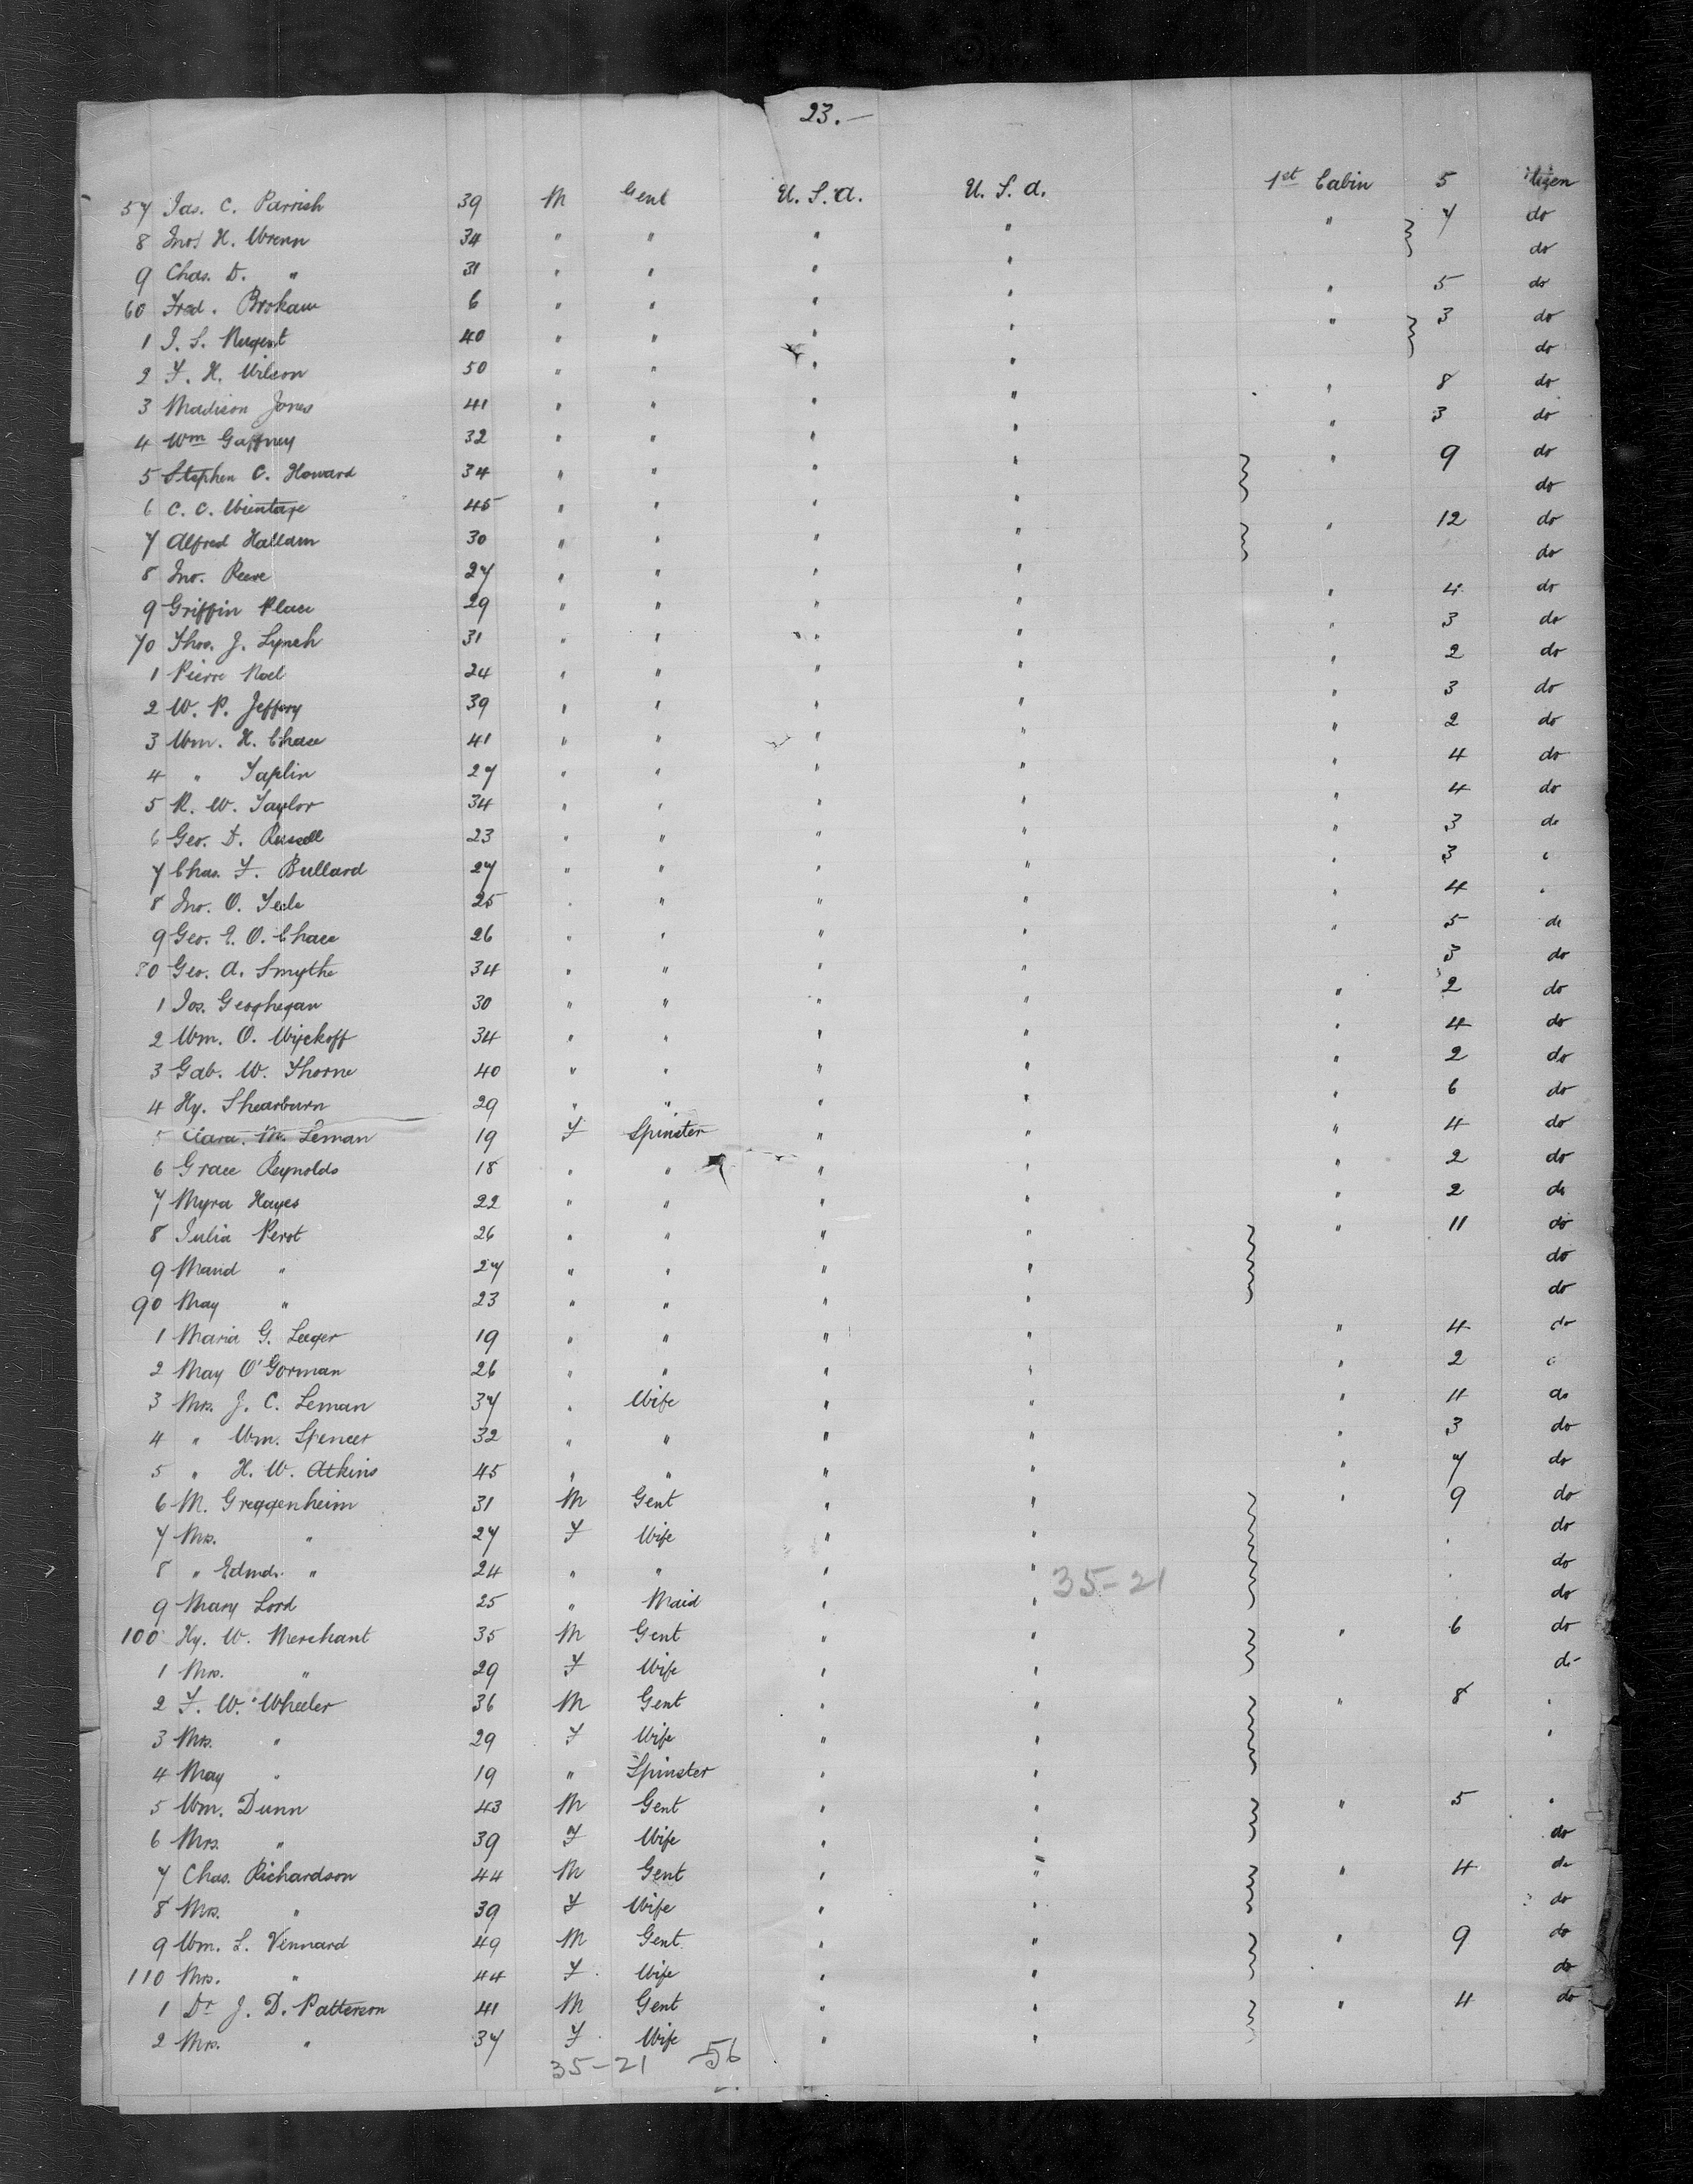 23.—
57 Jas. C. Parrish 39 M Gent U. S. A. U. S. A. 1st Cabin 5
8 Jno. H. Wrenn 34 " " " " " 7 do
9 Chas. D. " 31 " " " " do
60 Fred. Brokaw 6 " " " " " 5 do
1 J. S. Nugent 40 " " " " " 3 do
2 F. H. Wilson 50 " " " " do
3 Madison Jones 41 " " " " " 8 do
4 Wm Gaffney 32 " " " " " 3 do
5 Stephen C. Howard 34 " " " " " 9 do
6 C. C. 45 " " " " do
7 Alfred Hallam 30 " " " " " 12 do
8 Jno. Reeve 27 " " " " do
9 Griffin Place 29 " " " " " 4 do
70 Thos. J. Lynch 31 " " " " " 3 do
1 Pierre Noel 24 " " " " " 2 do
2 W. P. Jeffery 39 " " " " " 3 do
3 Wm. H. Chace 41 " " " " " 2 do
4 " Taplin 27 " " " " " 4 do
5 R. W. Taylor 34 " " " " " 4 do
6 Geo. D. Russell 23 " " " " " 3 do
7 Chas. F. Bullard 27 " " " " " 3 "
8 Jno. O. Teele 25 " " " " " 4 "
9 Geo. E. O. Chace 26 " " " " " 5 do
80 Geo. A. Smythe 34 " " " " 3 do
1 Jos. Geoghegan 30 " " " " " 2 do
2 Wm. O. Wyckoff 34 " " " " " 4 do
3 Gab. W. Thorne 40 " " " " " 2 do
4 Hy. Shearburn 29 " " " " " 6 do
5 Clara. M. Leman 19 F Spinster " " " 4 do
6 Grace Reynolds 18 " " " " " 2 do
7 Myra Hayes 22 " " " " " 2 do
8 Julia Perot 26 " " " " " 11 do
9 Maud " 27 " " " " do
90 May " 23 " " " " do
1 Maria G. Leeger 19 " " " " " 4 do
2 May O'Gorman 26 " " " " " 2 "
3 Mrs. J. C. Leman 37 " Wife " " " 4 do
4 " Wm. Spencer 32 " " " " " 3 do
5 " H. W. Atkins 45 " " " " " 7 do
6 M. Greggenheim 31 M Gent " " " 9 do
7 Mrs. " 27 F Wife " " do
8 " Edmd. " 24 " " " " do
35-21
9 Mary Lord 25 " Maid " " do
100 Hy. W. Merchant 35 M Gent " " " 6 do
1 Mrs. " 29 F Wife " " do
2 F. W. Wheeler 36 M Gent " " " 8 "
3 Mrs. " 29 F Wife " " "
4 May " 19 " Spinster " "
5 Wm. Dunn 43 M Gent " " " 5 "
6 Mrs. " 39 F Wife " " do
7 Chas. Richardson 44 M Gent " " " 4 do
8 Mrs. " 39 F Wife " " do
9 Wm. L. Vennard 49 M Gent " " " 9 do
110 Mrs. " 44 F Wife " " do
1 Dr J. D. Patterson 41 M Gent " " " 4 do
2 Mrs. " 37 F Wife " "
35-21 56